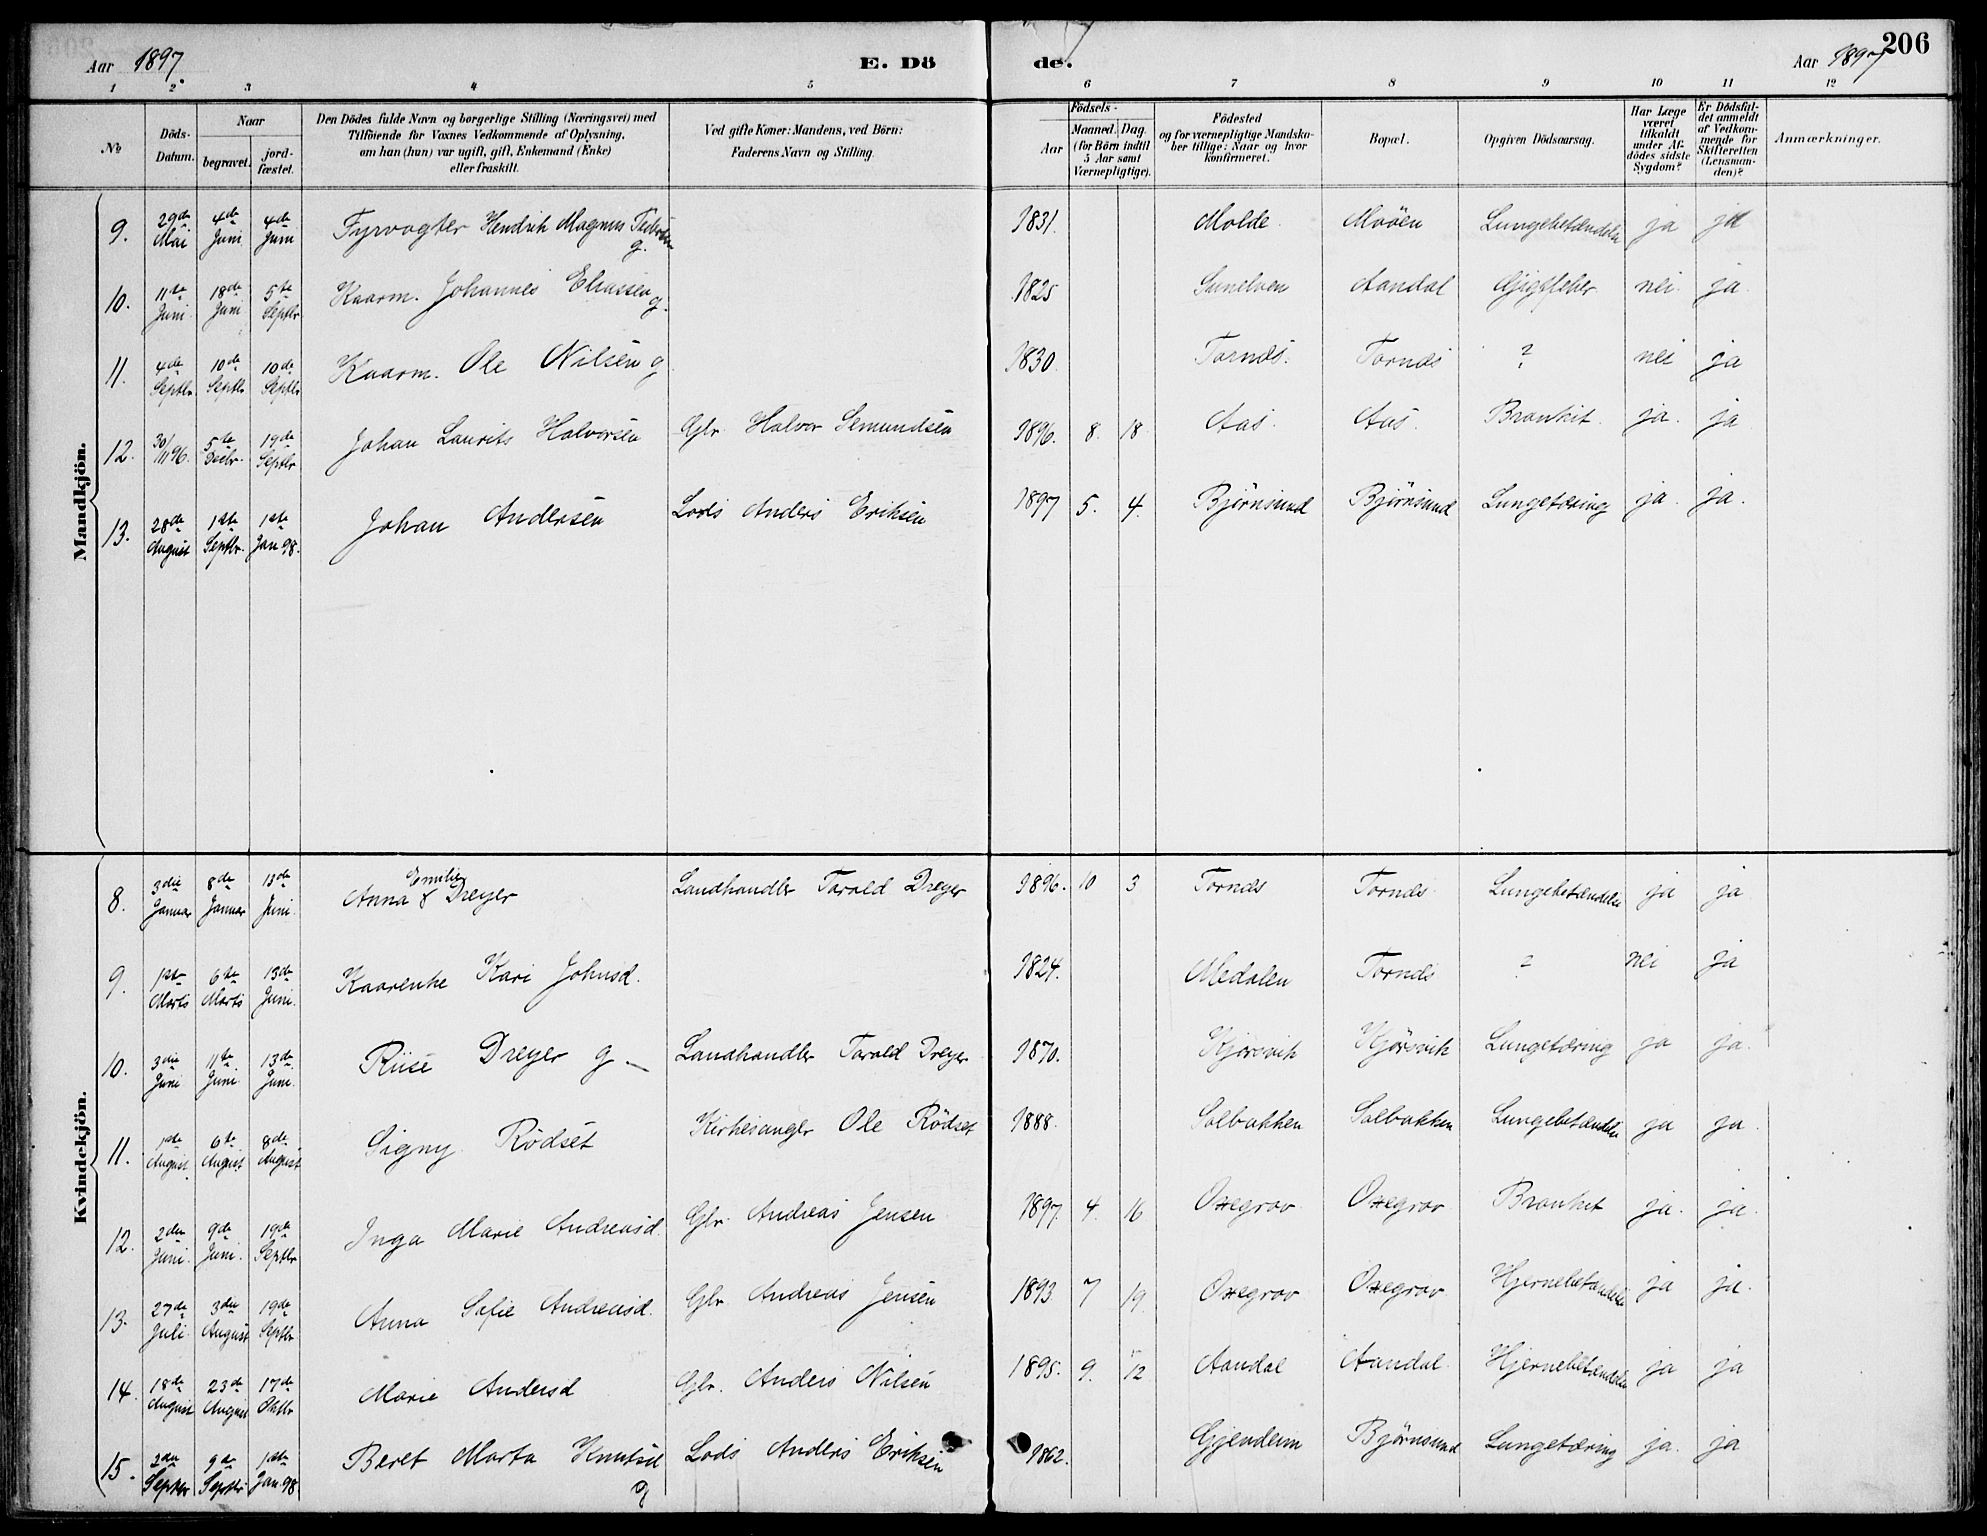 Aar 1897. E. Dö de. Aar 1897 206
1 2 3 4 5 6 7 8 9 10 11 12
№ Döds-Datum. Naar begravet. jord-fæstet. Den Dödes fulde Navn og borgerlige Stilling (Næringsvei) med Tilföiende for Voxnes Vedkommende af Oplysning, om han (hun) var ugift, gift, Enkemand (Enke) eller fraskilt. Ved gifte Koner: Mandens, ved Börn: Faderens Navn og Stilling. Födsels- Aar Maaned. Dag. (for Börn indtil 5 Aar samt Værnepligtige). Födested og for værnepligtige Mandskaber tillige: Naar og hvor konfirmeret. Bopæl. Opgiven Dödsaarsag. Har Læge været tilkaldt under Afdödes sidste Sygdom? Er Dödsfaldet anmeldt af Vedkommende for Skifteretten (Lensmanden)? Anmærkninger.
Mandkjön.
9. 29de Mai 4de Juni 4de Juni Fyrvogter Hendrik Magnus g. 1831. Molde Moöen Lungebetændelse ja ja
10. 11te Juni 18de Juni 5te Septbr Kaarm. Johannes Eliassen g. 1825 Sunelven Aandal Gigtfeber nei ja
11. 4de Septbr 10de Septbr 10de Septbr Kaarm. Ole Nilsen g 1830 Tornæs. Tornæs ? nei ja
12. 30/11 96. 5te Decbr. 19de Septbr Johan Laurits Halvorsen Gbr. Halvor Semundsen 1896. 8. 18. Aas. Aas. Bronkit. ja. ja
13. 28de August 1ste Septbr. 1ste Jan 98. Johan Andersen Lods Anders Eriksen 1897 5. 4. Björnsund Björnsund Lungetæring ja. ja.
Kvindekjön.
8. 3die Januar 8de Januar 13de Juni Anna Emilie Dreyer Landhandler Tarald Dreyer 1896. 10 3 Tornæs Tornæs Lungebetændelse ja ja
9. 1ste Marts 6te Marts 13de Juni. Kaarenke Kari Johnsd. 1824. Medalen Tornæs ? nei ja
10. 3die Juni 11te Juni 13de Juni. Riise Dreyer g — Landhandler Tarald Dreyer 1870. Kjörsvik Kjörsvik Lungetæring ja ja.
11. 1ste August. 6te August 8de August Signy Rödset Kirkesanger Ole Rödset 1888. Solbakken Solbakken Lungebetændelse ja ja.
12. 2den Juni. 9de Juni. 19de Septbr Inga Marie Andreasd. Gbr. Andreas Jensen 1897. 4. 16 Oxegrov Oxegrov Bronkit ja. ja.
13. 27de Juli. 3die August 19de Septbr Anna Sofie Andreasd. Gbr Andreas Jensen 1893 7 19. Oxegrov Oxegrov Hjernebetændelse ja ja.
14. 18de August 23de August 17de Oktbr Marie Andersd Gbr. Anders Nilsen 1895. 9. 12 Aandal Aandal. Hjernebetændelse ja ja
15. 2den Septbr 9de Septbr 1ste Jan 98 Beret Marta Knutsd g Lods Anders Eriksen 1862. Gjendem Björnsund Lungetæring ja. ja